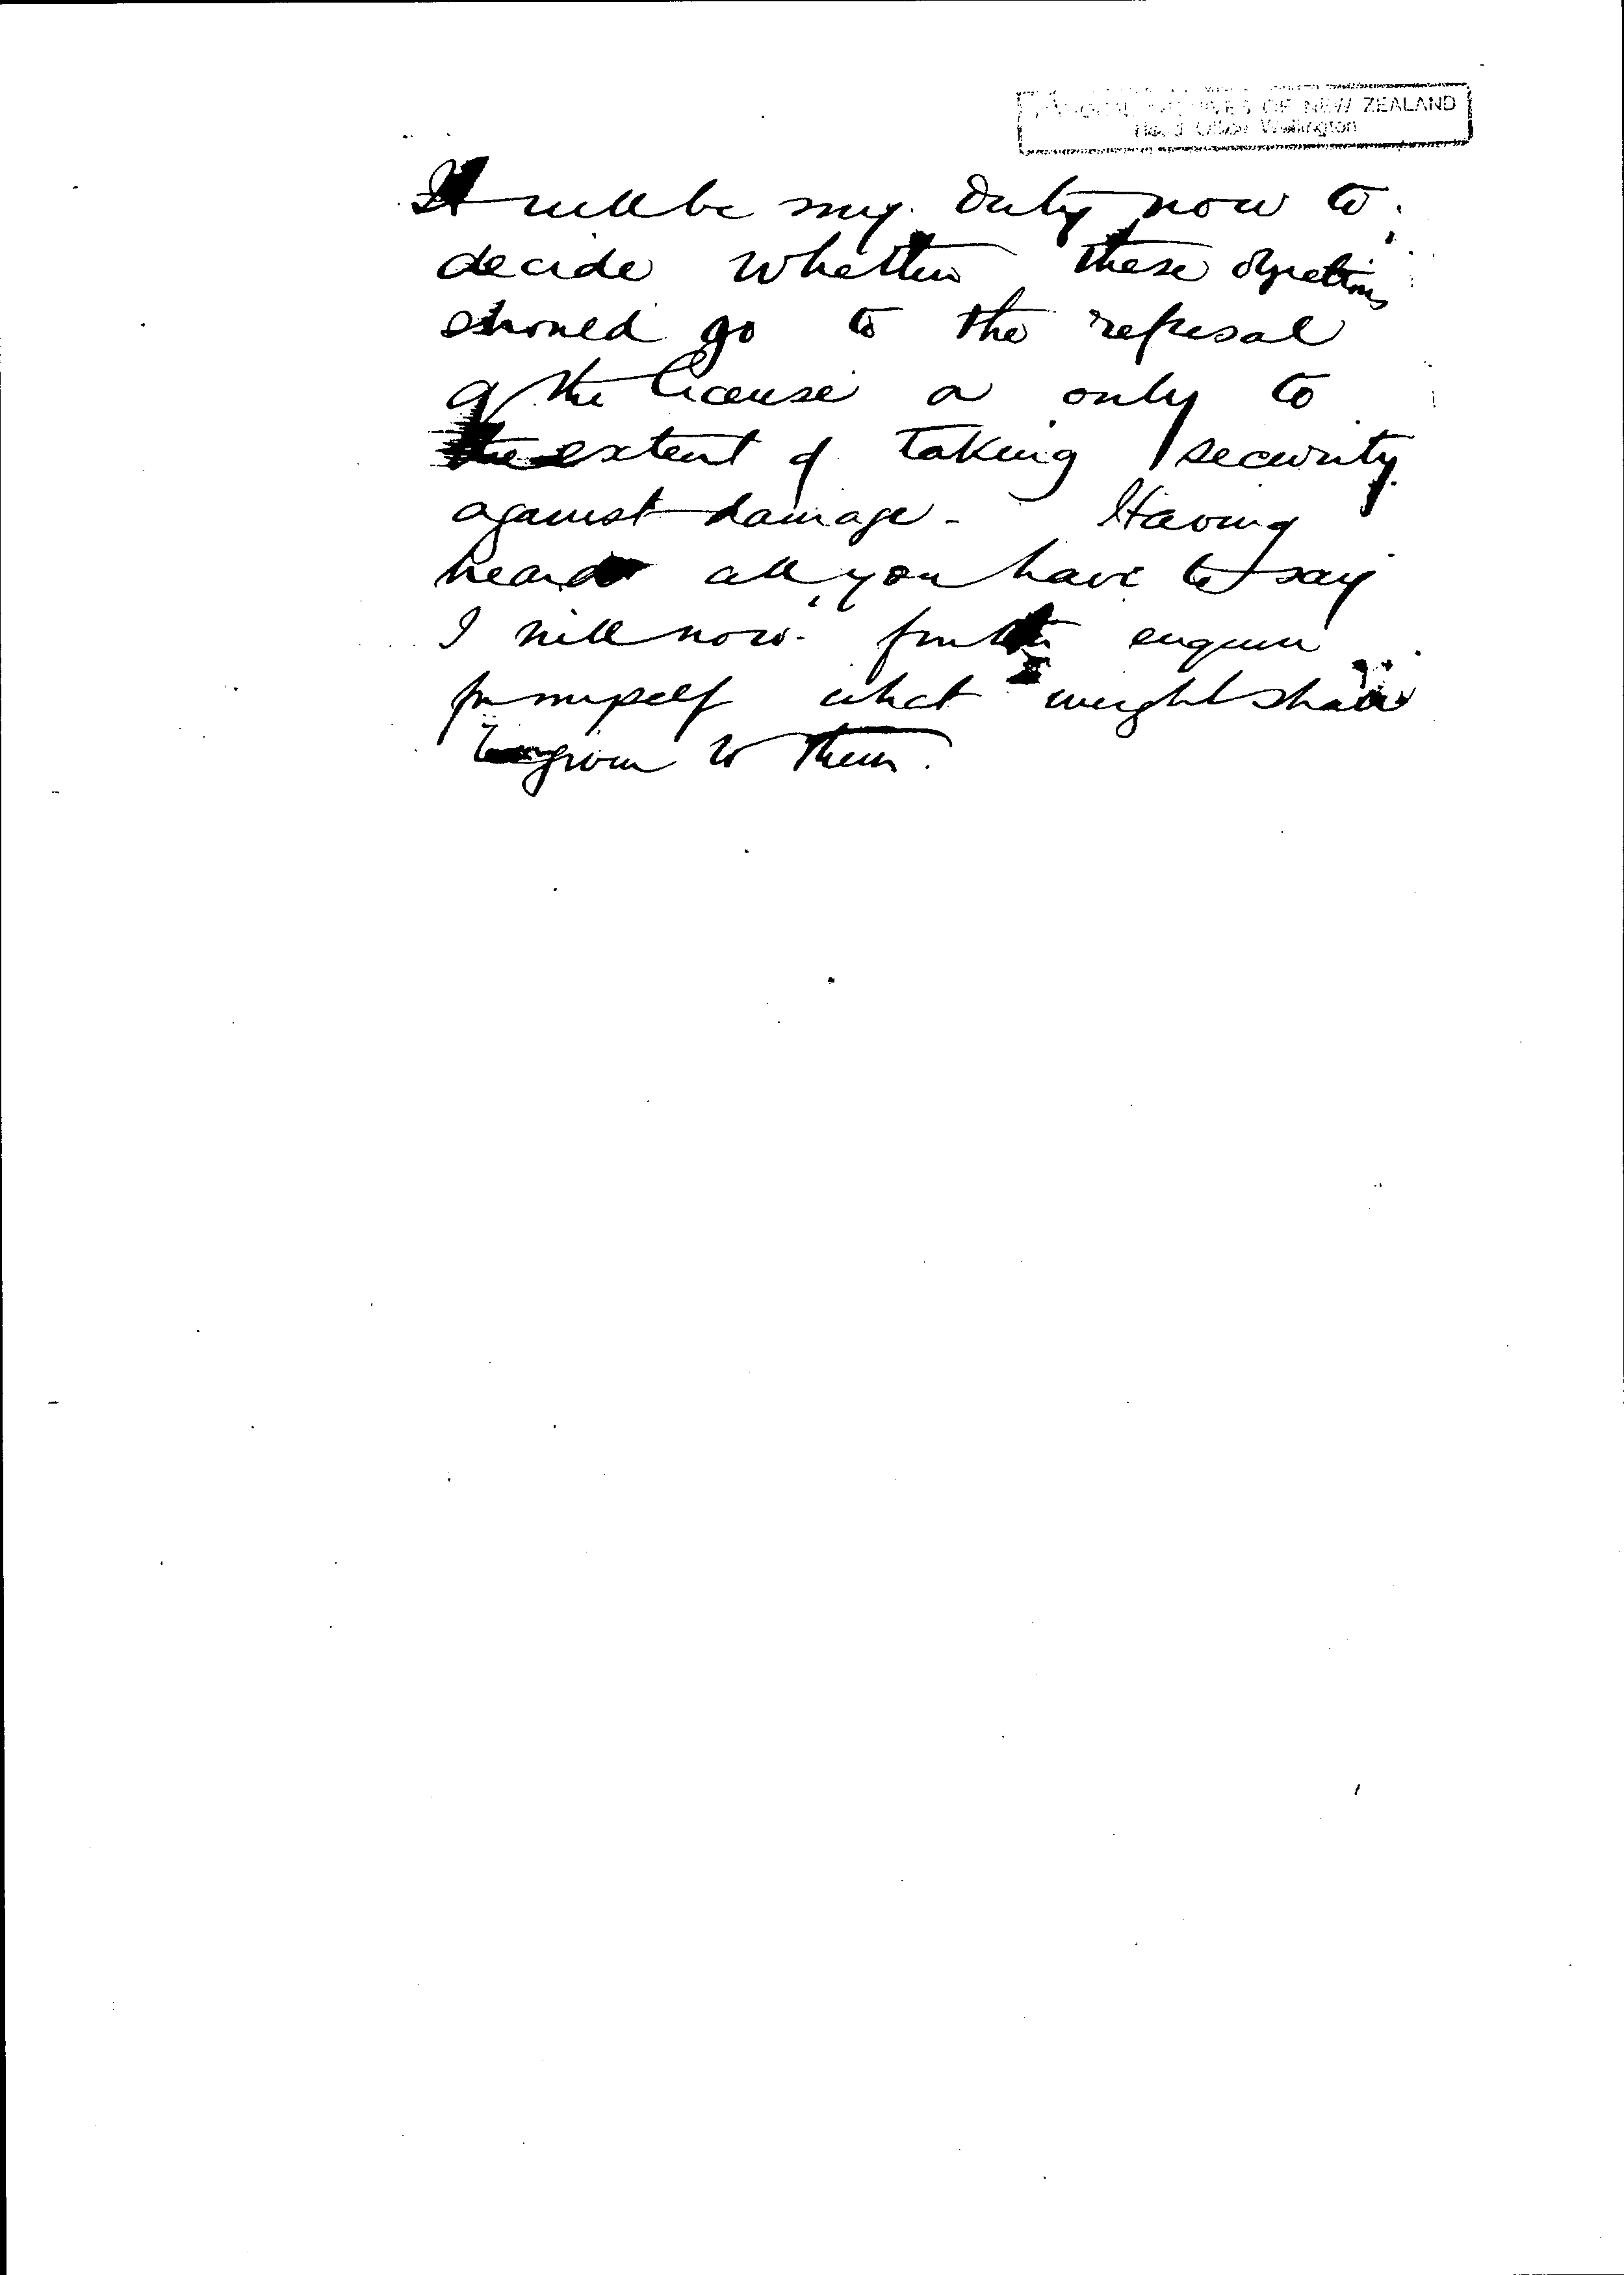 ARCHIVES OF NEW ZEALAND
Head Office Wellington
It will be my duty now to
decide whether these objections
should go to the refusal
of the license or only to
the extent of taking security
against damage - Having
heard all you have to say
I will now further enquire
for myself what weight shall
be given to them.